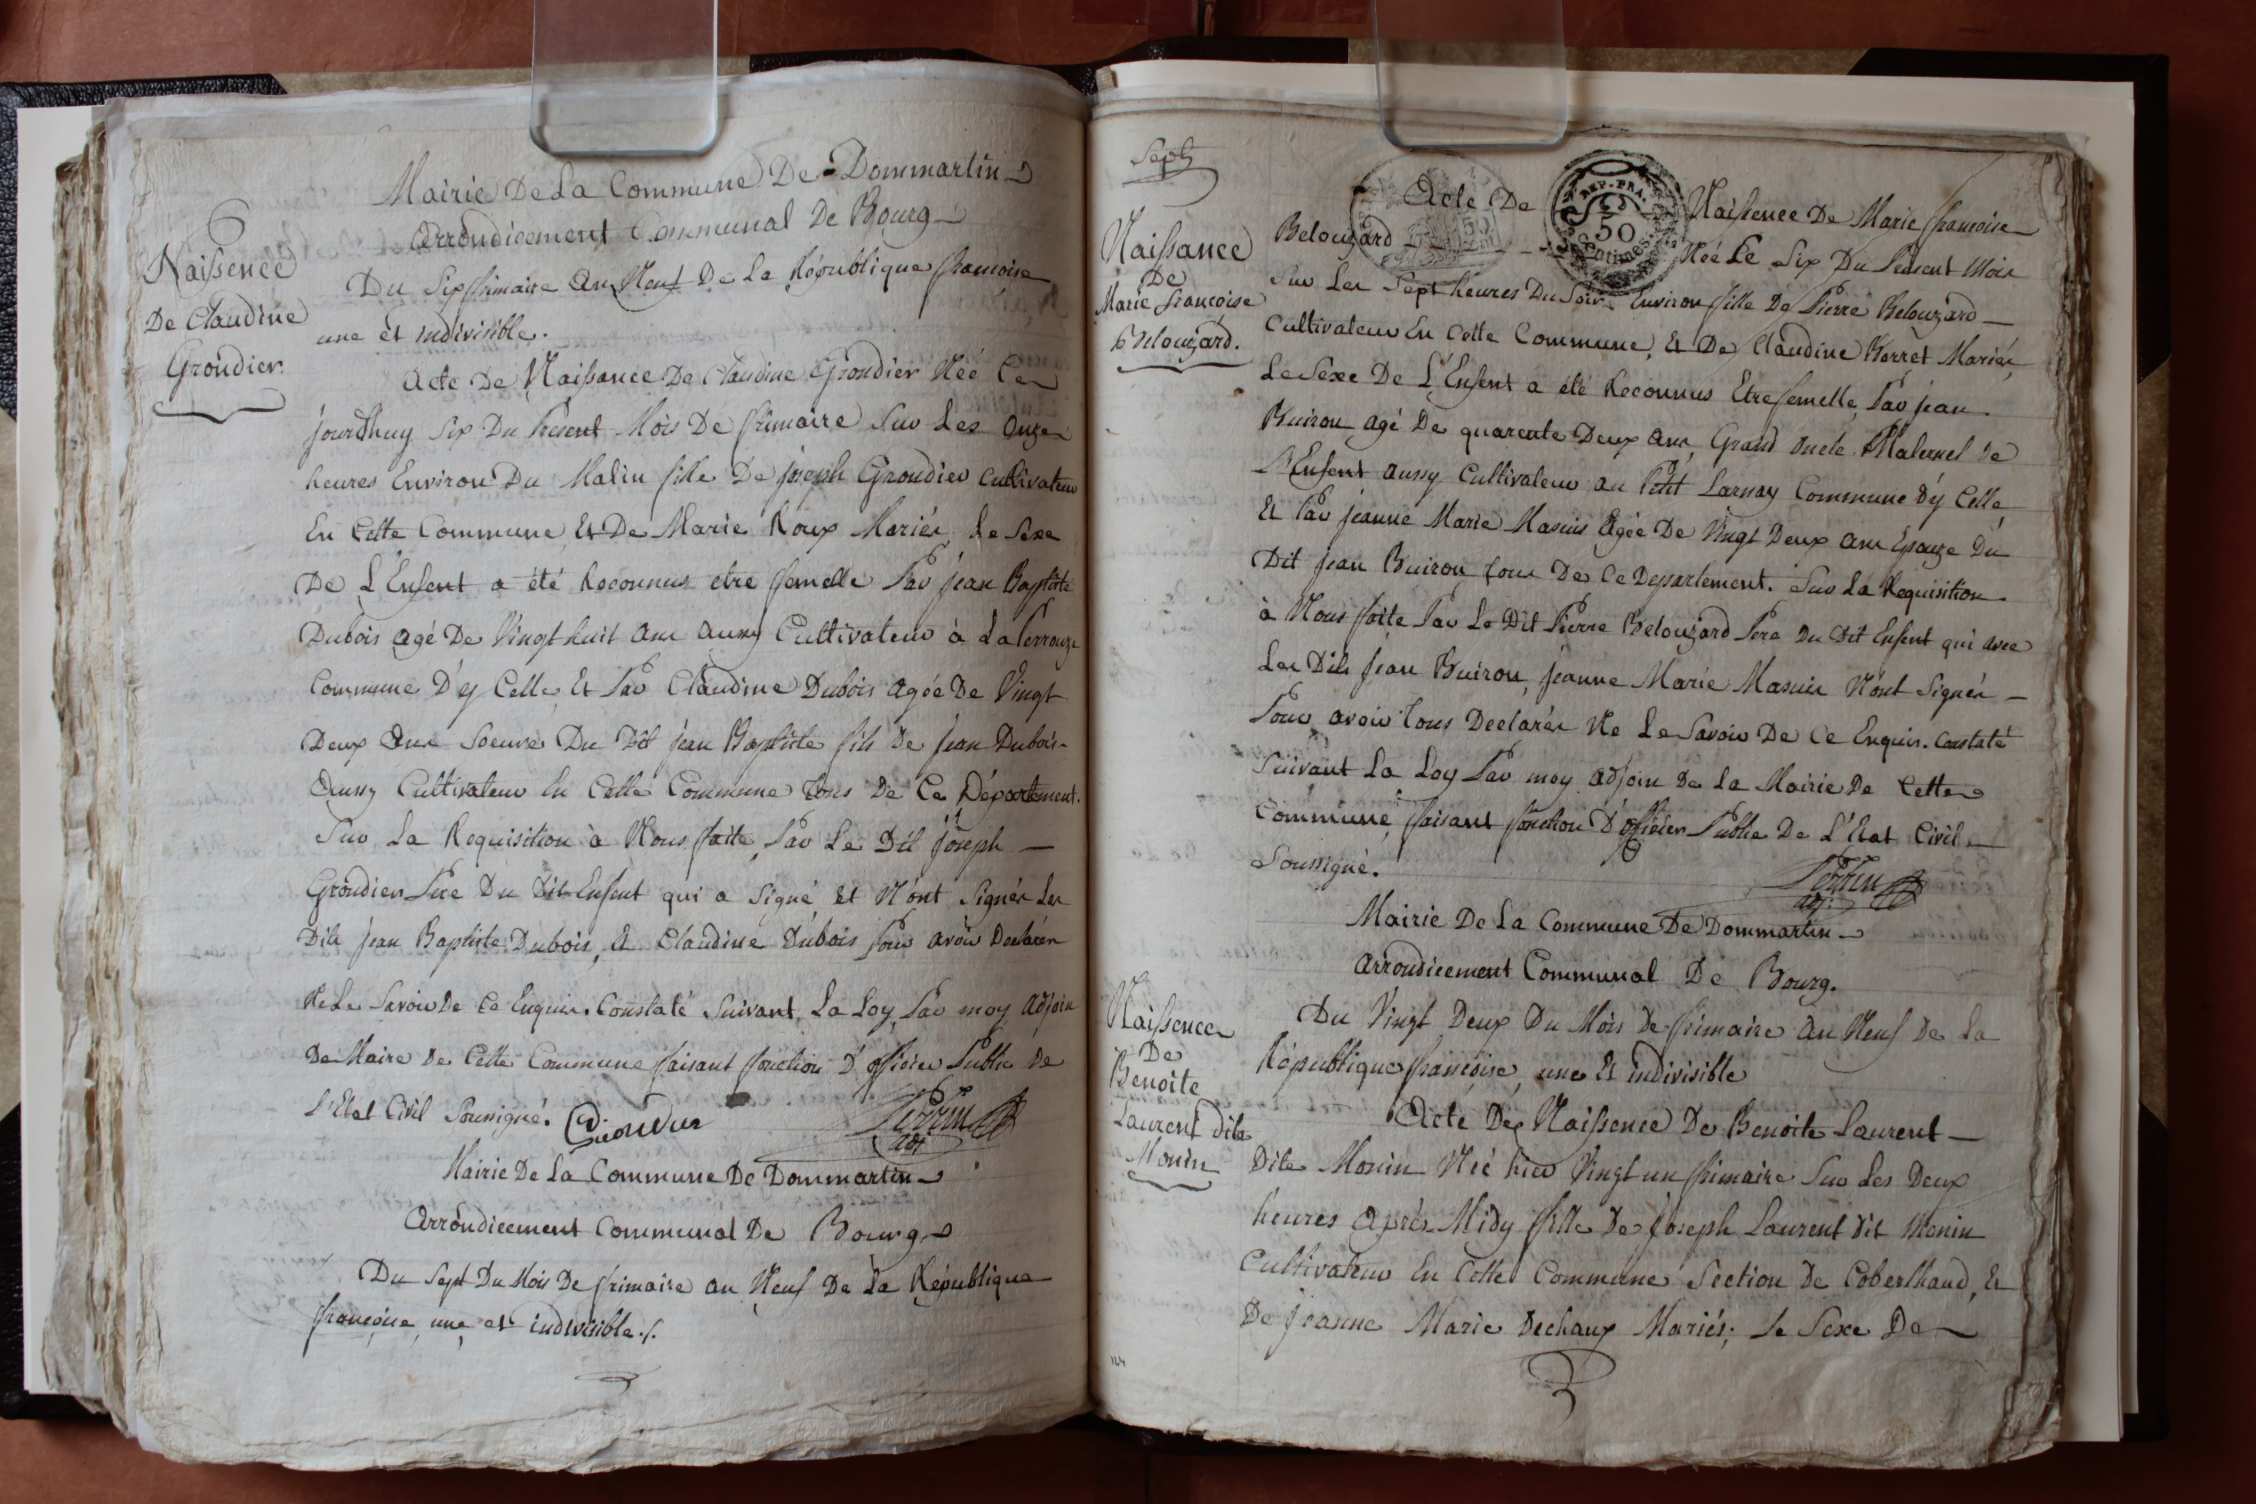 6
Naissence
De Claudine
Grondier
Mairie De La Commune De Dommartin
Arrondicement Communal De Bourg
Du Six frimaire an Neuf De la République francoise
une et indivisible.
Acte De Naissance De Claudine Grondier Néé Ce
jourdhuy Six Du Présent Mois De frimaire Sur Les Onze
heures Environ Du Matin fille De joseph Grondier Cultivateur
En Cette Commune, Et De Marie Roux Mariés, Le Sexe
De L'Enfent a été Reconnus etre femelle Par jean Baptiste
Dubois agé De Vingt huit ans aussy Cultivateur à La Perrouze
Commune D'ey Celle, Et Par Claudine Dubois agée De Vingt
Deux Ans Soeure Du Dit jean Baptiste fils De jean Dubois
Aussy Cultivateur En Cette Commune Tous De Ce Département.
Sur La Requisition à Nous faite Par Le Dit joseph
Grondier Pere Du Dit Enfent qui a Signé Et N'ont Signés Les
Dits jean Baptiste Dubois, Et Claudine Dubois Pour avoir Declarés
Ne Le Savoir De Ce Enquis. Constaté Suivant La Loy, Par moy Adjoin
De Maire De Cette Commune faisant fonction D'officier Public De
L'Etat Civil Soussigné.
Perrin
adj
Mairie De La Commune De Dommartin
Arrondicement Communal De Bourg
Du Sept Du Mois De frimaire an Neuf De La République
francoise, une et indivisible ./.
Sept
Naissance
De
Marie francoise
Belouzard.
Acte De Naissence De Marie francoise
REP. FRA.
50
Centimes
Belouzard Néé Le Six Du Présent Mois
Sur Les Sept heures Du Soir Environ fille De Pierre Belouzard
Cultivateur En Cette Commune, Et De Claudine Borret Mariés,
Le Sexe De L'Enfent a été Reconnus Etre femelle, Par jean
Buiron agé De quarente Deux ans, Grand oncle Maternel De
L'Enfent aussy Cultivateur au Petit Larnay Commune D'ey Celle,
Et Par jeanne Marie Masuis Agée De Vingt Deux ans Epouze Du
Dit jean Buiron tous De Ce Departement. Sur La Requisition
à Nous faite Par Le Dit Pierre Belouzard Pere Du Dit Enfent qui avec
Les Dits jean Buiron, jeanne Marie Masuis N'ont Signés
Pour avoir Tous Declarés Ne Le Savoir De Ce Enquis. Constaté
Suivant La Loy Par moy adjoin De La Mairie De Cette
Commune, faisant fonction D'officier Public De L'Etat Civil
Soussigné.
Perrin
adj.
Mairie De La Commune De Dommartin
Arrondicement Communal De Bourg.
Naissence
De
Benoite
Laurent dite
Monin
Du Vingt Deux Du Mois De frimaire an Neuf De La
République francoise, une Et indivisible
Acte De Naissence De Benoite Laurent
Dite Monin Néé hier Vingt un frimaire Sur Les Deux
heures Après Midy fille De joseph Laurent dit Monin
Cultivateur En Cette Commune Section De Coberthoud, Et
De jeanne Marie Dechaux Mariés; Le Sexe De